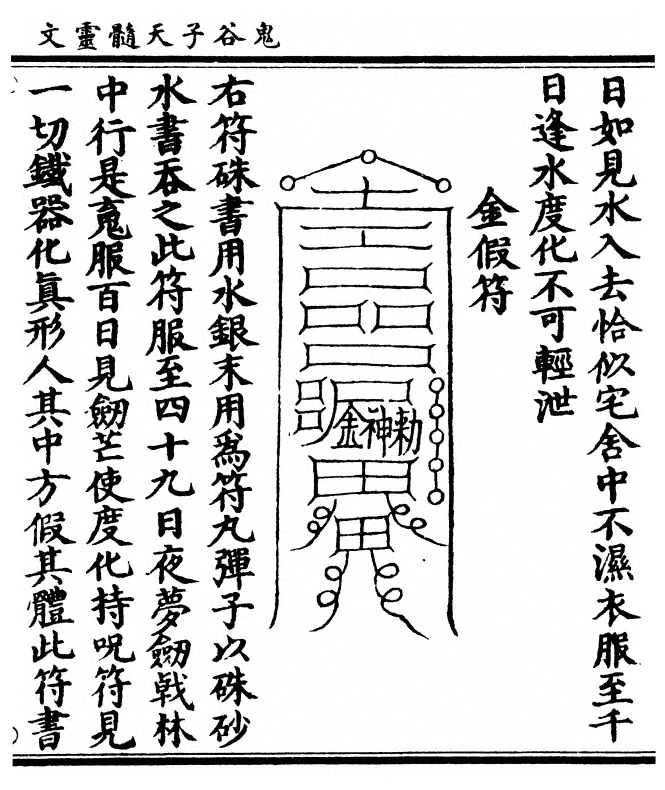 鬼谷子天髓靈文
日如見水入去恰似宅舍中不濕衣服至千
日逢水度化不可輕泄
金假符
勅神金
右符硃書用水銀末用爲符丸彈子以硃砂
水書吞之此符服至四十九日夜夢劒戟林
中行是竟服百日見劒芒使度化持呪符見
一切鐵器化眞形人其中方假其體此符書